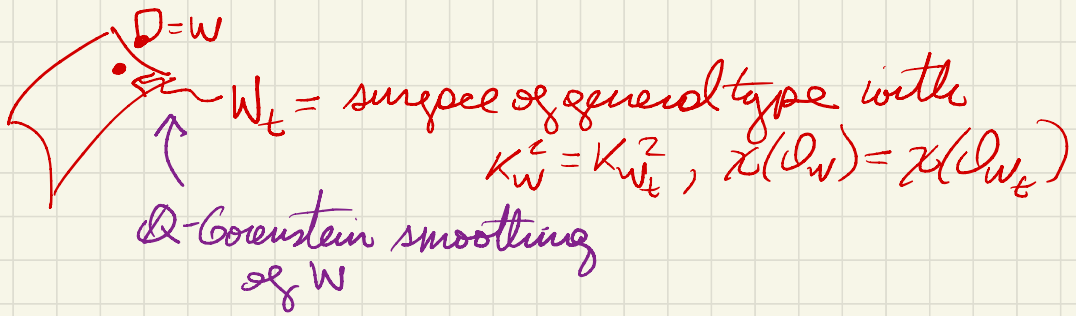 D=W
W_t = surface of general type with
K_W^2 = K_{W_t}^2, χ(O_W) = χ(O_{W_t})
Q-Gorenstein smoothing
of W